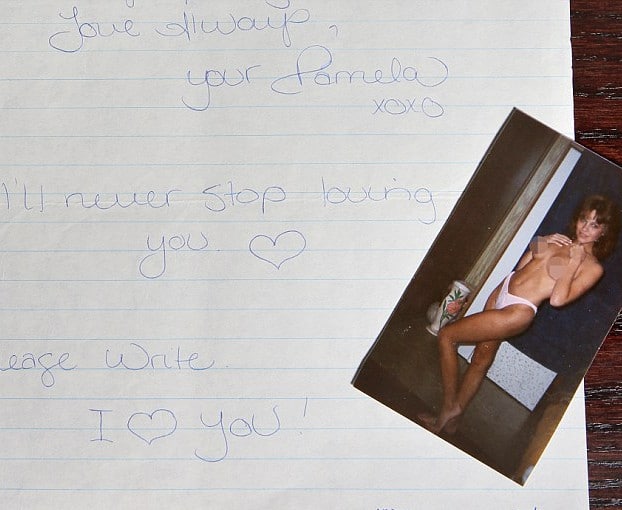 Love Always,
your Pamela
xoxo
I'll never stop loving
you ♡
ease Write.
I ♡ YOU!